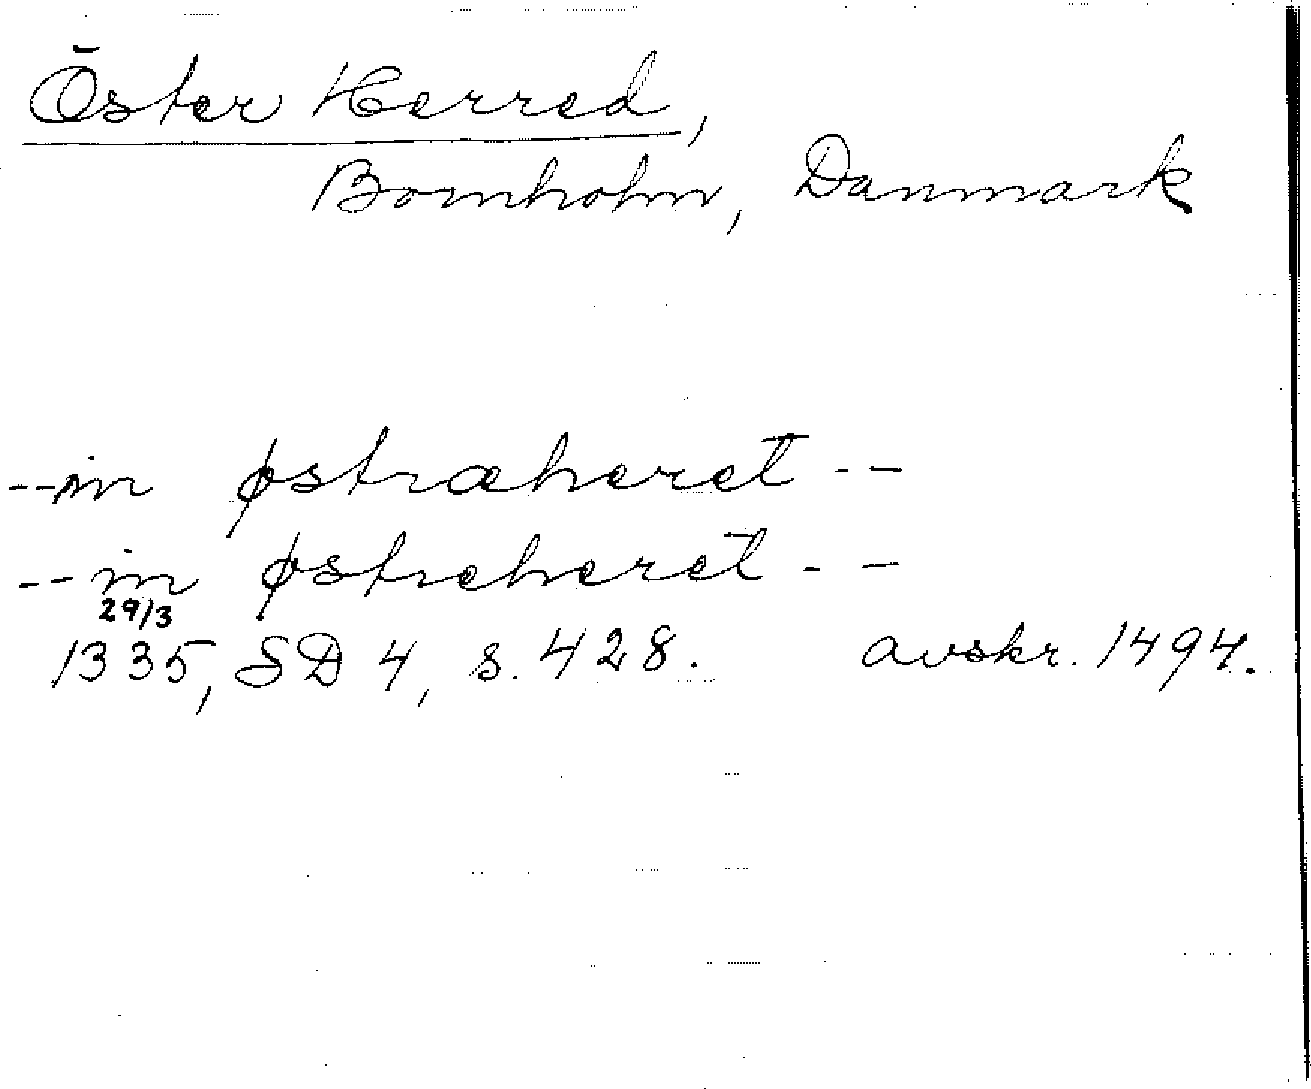 Öster Herred,
Bornholm, Danmark
--in østræheret--
--in østreheret--
29/3
1335, SD 4, s. 428. avskr. 1494.